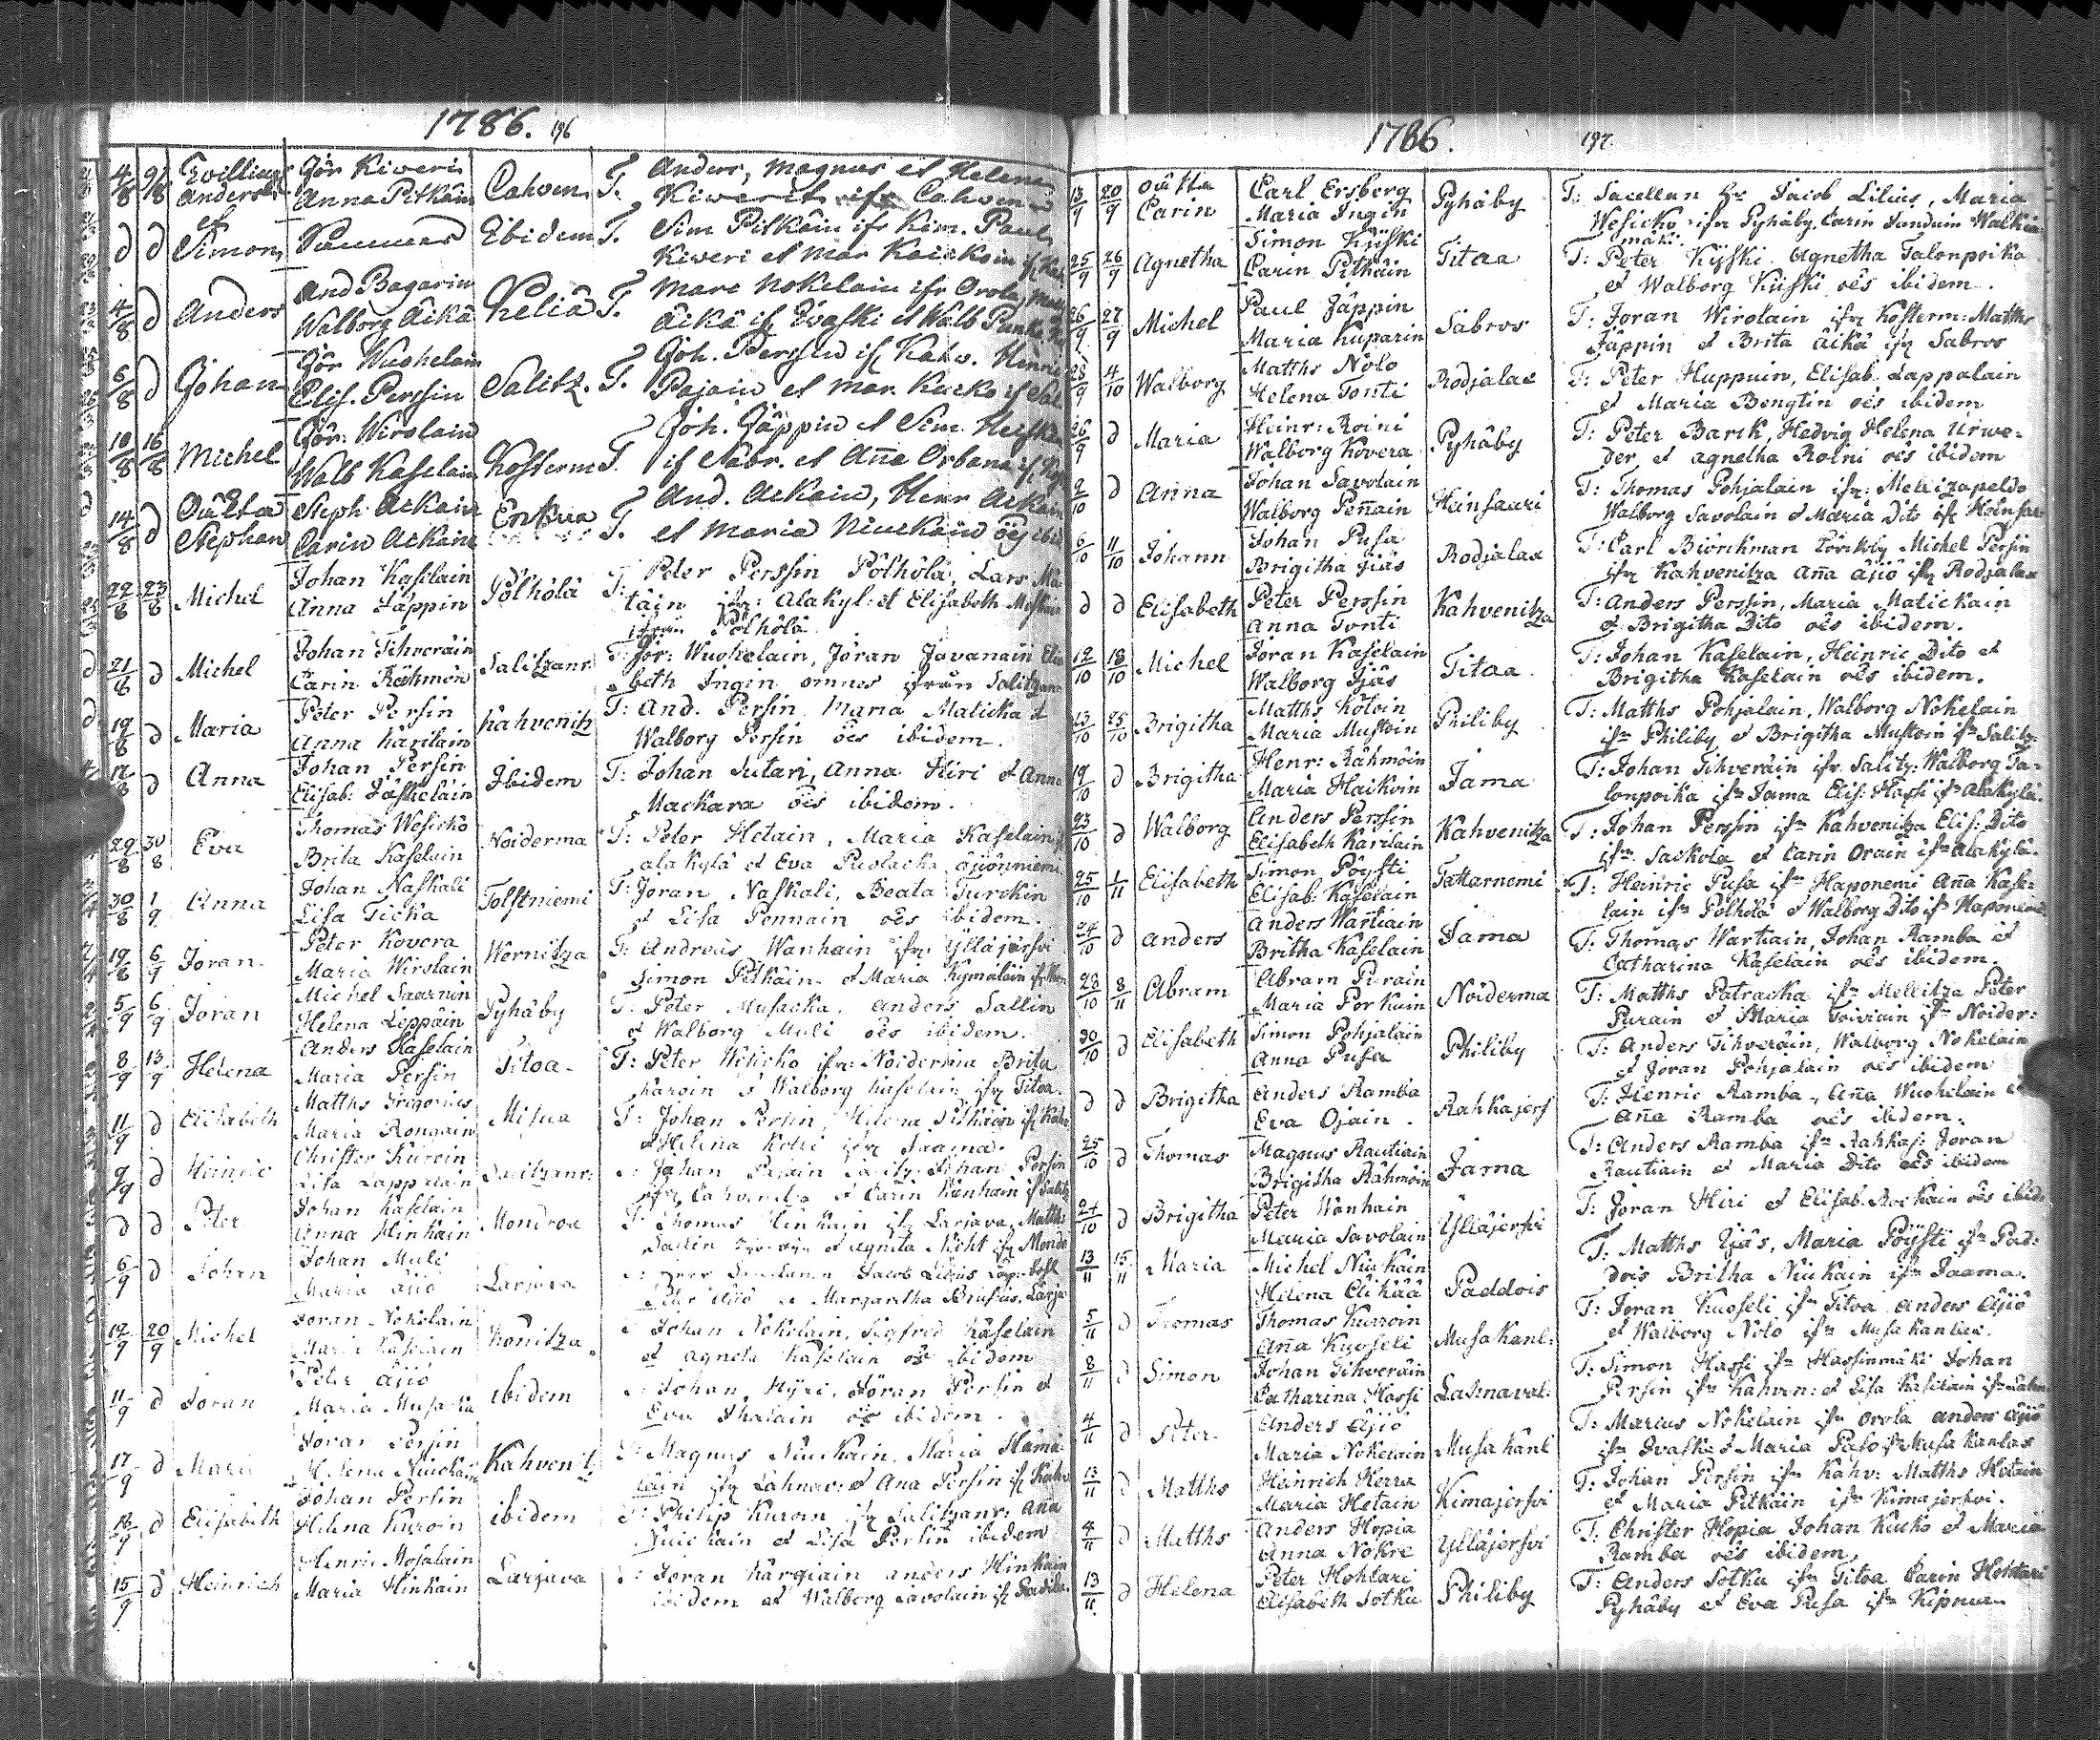 1786. 196
4/8 9/8 Tvilling Jör Kiveri Cahven T. Anders, Magnus et Helena
Anders Anna Pitkäin Kiverit ifr Cahven
et
d d Simon Sammas Ibidem T. Sim Pitkäin ifr Kim. Paul
Kiveri et Mar Kaickoin
4/8 d Anders And Bagarin Kelia T. Marc Nokelain ifr Orola
Walborg Äikä Äikä ifr Ivaski et Walb
6/8 d Johan Jör Wuohelain Salitz. T. Joh. Perssin if Kahv. Henric
Elis. Perssin Pajain et Mar Kucko if Sal
10/8 16/8 Michel Jör. Wirolain Kosterm T. Joh. Jäppin et Sim.
Walb Kaselain if Sabr. et Aña Orbana
14/8 d Oäkta Steph Ackain T. And. Ackain, Henr Ackain
Stephan Carin Ackain et Maria Niuckain öes ibid
22/8 23/8 Michel Johan Kaselain Pölhölä T: Peter Perssin Pölhölä, Lars
Anna Jäppin täin ifr: Alakyl: et Elisabeth
ifrån Pölhölä
21/8 d Michel Johan Tihveräin Salitzanr T: Jör: Wuohelain, Jöran Javanain Elis
Carin Rähmön beth Ingin omnes ifrån Salitzanr
19/8 d Maria Peter Persin Kahvenitz T: And. Persin Maria Maticka et
Anna Karilain Walborg Persin öes ibidem.
17/8 d Anna Johan Persin Ibidem T: Johan Sutari, Anna Hiri et Anna
Elisab: Jäskeläin Mackara öes ibidem.
29/8 30/8 Eva Thomas Wesicko Noiderma T: Peter Hetain, Maria Kaselain
Brita Kaselain alakylä et Eva Puolacka äjiönniemi
30/8 1/9 Anna Johan Naskali Tolstniemi T: Joran Naskali, Beata Turckin
Lisa Ticka et Lisa Pennain oës ibidem.
19/8 6/9 Joran Peter Kovera Wernitza T: Andreas Wanhain ifr: Ylläjärfvi
Maria Wirolain Simon Pitkäin et Maria Kymäläin
5/9 6/9 Joran Michel Saarnin Pyhäby T: Peter Musacka, Anders Sallin
Helena Leppäin et Walborg Muli oës ibidem.
8/9 13/9 Helena Anders Kaselain Titoa T: Peter Wesicko ifr: Noiderma Brita
Maria Persin Karoin et Walborg Kaselain ifr Titoa.
11/9 d Elisabeth Matths Grigorius Misua T: Johan Persin, Helena Pitkäin if Kahv
Maria Rongain et Helena Kotti ifr Jaama.
9/9 d Heinric Christer Kuroin Salitzanr: T: Johan Pajain Salitz: Johan Persin
Lisa Lappalain ifr Cahvenitza et Carin Wanhain if Salitz
d d Peter Johan Kaselain Mondroa T: Thomas Hinkain ifr Larjava, Matths
Anna Hinkain et Agneta Nicht ifr Mondr
6/9 d Johan Johan Muli Larjava T: Jacob Lilius
Maria Äjiö Peter Äjiö et Margaretha Brusius. Larja
12/9 20/9 Michel Joran Nokelain Konitza T: Johan Nokelain, Sigfred Kaselain
Maria Kaselain et Agneta Kaselain oës ibidem
11/9 d Joran Peter Äjiö ibidem T: Johan Hyri, Jöran Persin et
Maria Musacka Eva Ihalain oës ibidem.
17/9 d Maria Joran Persin Kahvenit T: Magnus Niuckain, Maria Hämä
Helena Niuckain läin ifr Lahnav: et Ana Persin if Kahv
18/9 d Elisabeth Johan Persin ibidem T: Philip Kuroin ifr Salitzanr: Aña
Helena Kuroin Niuckain et Lisa Persin ibidem
15/9 d Heinrich Henric Mosalain Larjava T: Joran Kargiain Anders Hinkain
Maria Hinkain ibidem et Walborg Savolain if
1786. 197.
13/9 20/9 Oäkta Carl Ersberg Pyhäby T: Sacellan Hr Jacob Lilius, Maria
Carin Maria Ingin Wesicko ifr Pyhäby, Carin Sundvin Walkia
mäki.
25/9 26/9 Agnetha Simon Kÿski Titaa T: Peter Kÿski Agnetha Talonpoika
Carin Pitkäin et Walborg Kiiski oës ibidem.
26/9 27/9 Michel Paul Jäppin Sabros T: Joran Wirolain ifr Kosterm: Matths
Maria Kuparin Jäppin et Brita Äikä ifr Sabros
28/9 4/10 Walborg Matths Nolo Rodjalax T: Peter Huppuin, Elisab. Lappalain
Helena Tonti et Maria Bengtin oës ibidem
26/9 d Maria Heinr: Roini Pyhäby T: Peter Barck, Hedvig Helena Urwe-
Walborg Kovera der et Agnetha Roini oës ibidem
2/10 d Anna Johan Savolain Heinsaari T: Thomas Pohjalain ifr: Mellizapeldo
Walborg Peñain Walborg Savolain et Maria Dito ifr Heinsar
6/10 11/10 Johann Johan Pusa Rodjalax T: Carl Biörckman Michel Persin
Brigitha Jjäs ifr Kahvenitza Aña Äjiö ifr Rodjalax
d d Elisabeth Peter Perssin Kahvenitza T: Anders Perssin, Maria Matickain
Anna Tonti et Brigitha Dito oës ibidem.
12/10 18/10 Michel Joran Kaselain Titaa T: Johan Kaselain, Heinric Dito et
Walborg Jjäs Brigitha Kaselain oës ibidem.
13/10 25/10 Brigitha Matths Kötoin Philiby T: Matths Pohjalain, Walborg Nokelain
Maria Mustoin ifr Philiby et Brigitha Mustoin ifr Salitz.
19/10 d Brigitha Henr: Rähmöin Jama T: Johan Tihveräin ifr Salitz: Walborg Ta-
Maria Haikoin lonpoika ifr Jama Elis: Hassi ifr Alakylä.
23/10 d Walborg Anders Perssin Kahvenitza T: Johan Perssin ifr Kahvenitza Elis: Dito
Elisabeth Karilain ifr Sackola et Carin Orain ifr Alakylä.
25/10 1/11 Elisabeth Simon Pöysti Tattarnemi T: Heinric Pusa ifr Haponemi Aña Kase-
Elisab: Kaselain lain ifr Pölhölä et Walborg Dito ifr Haponemi
24/10 d Anders Anders Wartiain Jama T: Thomas Wartiain, Johan Ramba et
Britha Kaselain Catharina Kaselain oës ibidem.
28/10 8/11 Abram Abram Purain Noiderma T: Matths Patracka ifr Mellitza Peter
Maria Porkain Purain et Maria Toiviain ifr Noider:
30/10 d Elisabeth Simon Pohjalain Philiby T: Anders Tihveräin, Walborg Nokelain
Anna Pusa et Joran Pohjalain oës ibidem
d d Brigitha Anders Ramba Rahkajerf T: Henric Ramba, Aña Wuohelain et
Eva Ojain Aña Ramba oës ibidem.
25/10 d Thomas Magnus Rautiain Jama T: Anders Ramba ifr Rahkaj: Joran
Brigitha Rähmöin Rautiain et Maria Dito oës ibidem
24/10 d Brigitha Peter Wanhain Ylläjerfvi T: Joran Hiri et Elisab. Rockain oës ibid.
Maria Savolain
13/11 15/11 Maria Michel Niukain Paddois T: Matths Jjäs, Maria Pöÿsti ifr Pad-
Helena Äikää dois Britha Niukain ifr Jaama.
5/11 d Thomas Thomas Kurroin Musakanl: T: Joran Kuoseli ifr Titoa Anders Äjiö
Aña Kuoseli et Walborg Nolo ifr Musakanlax.
8/11 d Simon Johan Tihveräin Lahnaval: T: Simon Hassi ifr Hassinmäki Johan
Catharina Hassi Persin ifr Kahven: et Lisa Kaselain ifr Lahn
4/11 d Peter Anders Äjiö Musakanl T: Marcus Nokelain ifr Orola Anders Äjiö
Maria Nokelain ifr Ivaski et Maria Paso ifr Musakanlax
13/11 d Matths Heinrich Herra Kimajerfvi T: Johan Persin ifr Kahv: Matths Hetain
Maria Hetain et Maria Pitkäin ifr Kimajerfvi.
4/11 d Matths Anders Hopia Ylläjerfvi T: Christer Hopia Johan Kucko et Maria
Anna Nokre Ramba oës ibidem.
13/11 d Helena Peter Hohtari Philiby T: Anders Sotku ifr Titoa Carin Hohtari
Elisabeth Sotku Pyhäby et Eva Pusa ifr Kipnua